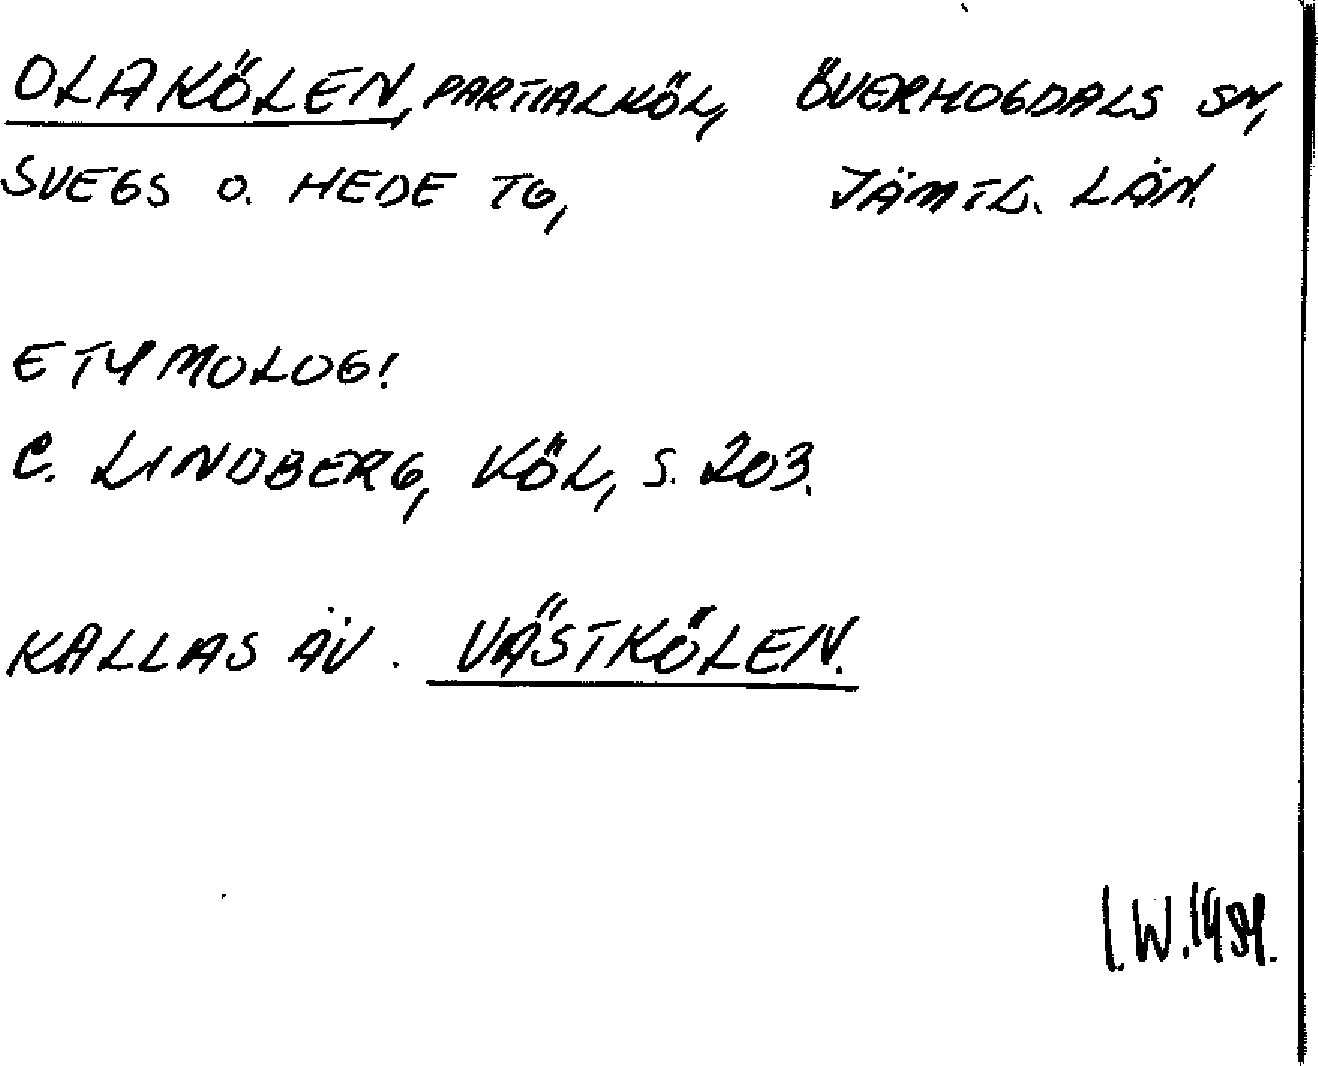 OLAKÖLEN, PARTIALKÖL, ÖVERHOGDALS SN,
SVEGS O. HEDE TG, JÄMTL. LÄN.
ETYMOLOGI
C. LINDBERG, KÖL, S. 203.
KALLAS ÄV. VÄSTKÖLEN.
I.W.